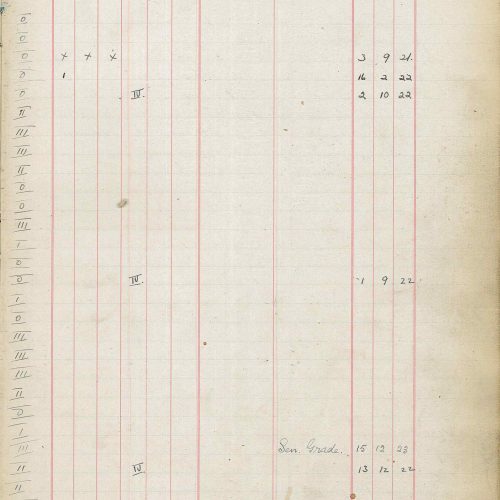 0
0
0 x x x 3 9 21.
0 1 16 2 22
0 IV. 2 10 22
II
III
III
II
0
0
III
1
0
0 IV. 1 9 22
1
0
III
III
III
II
0
1
III Sen. Grade. 15 12 23
II IV 13 12 22
II